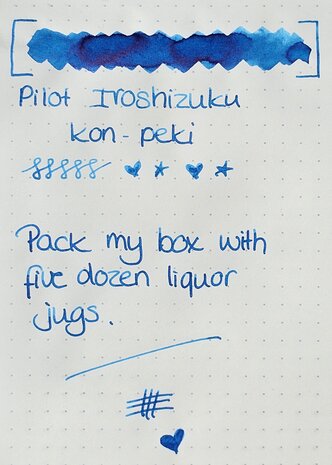 Pilot Iroshizuku
kon-peki
Pack my box with
five dozen liquor
jugs.